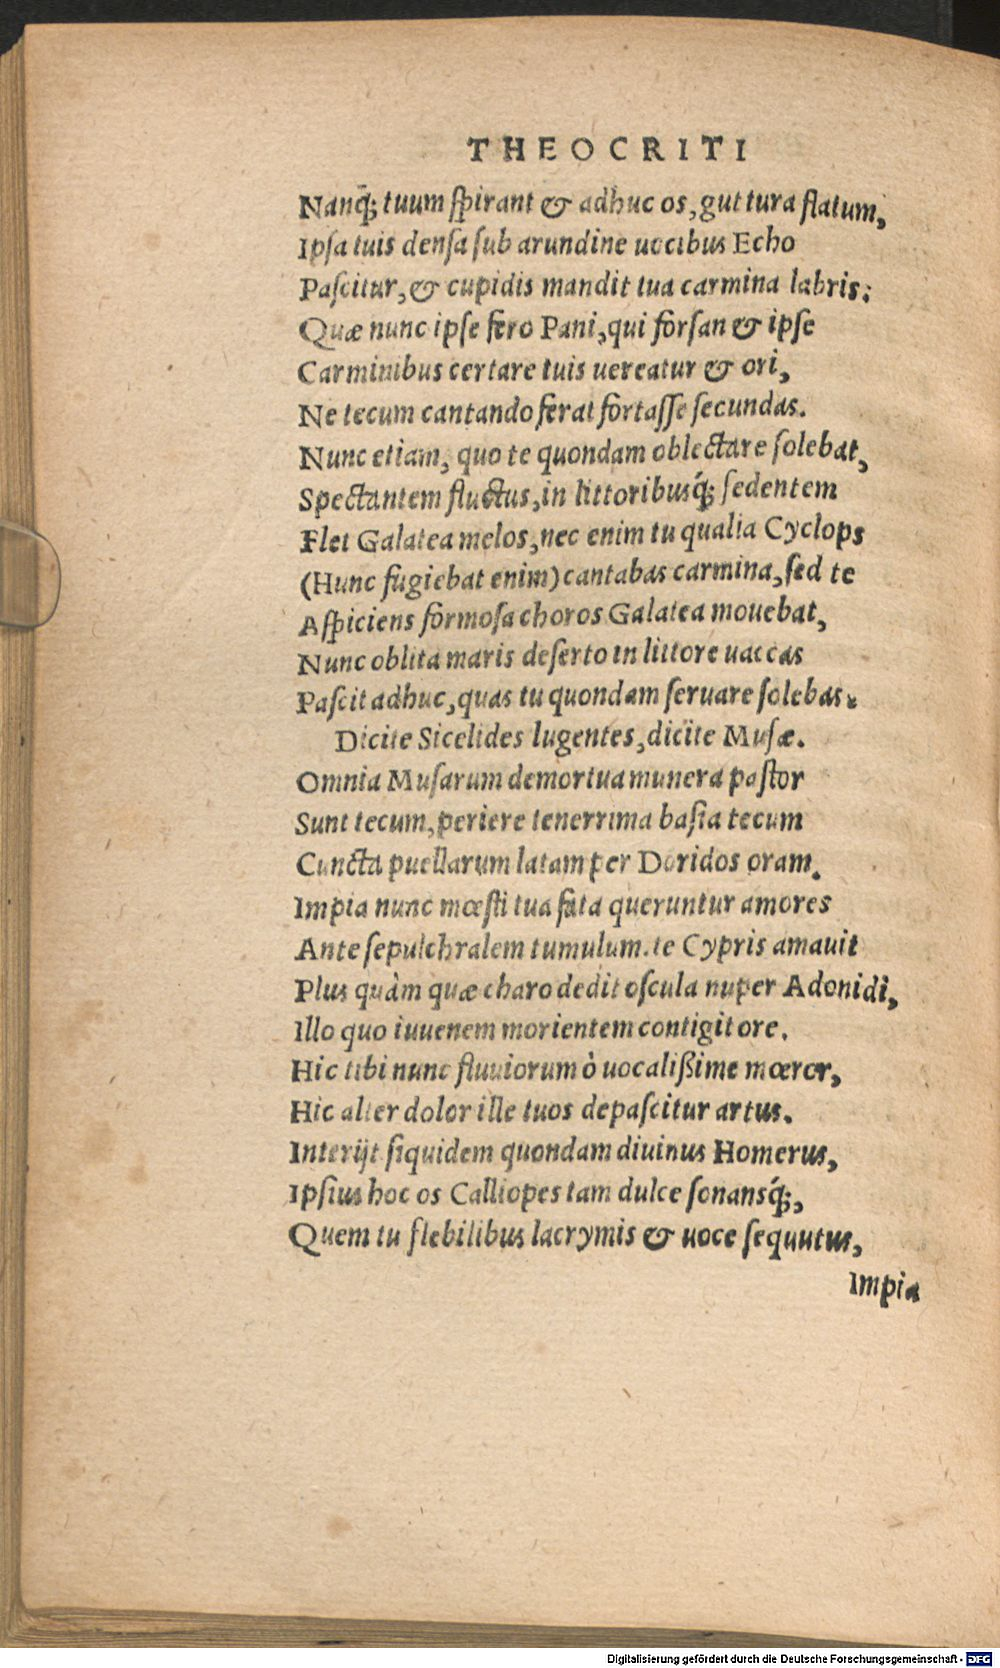 THEOCRITI
Nanq́; tuum spirant & adhuc os, guttura flatum,
Ipsa tuis densa sub arundine uocibus Echo
Pascitur, & cupidis mandit tua carmina labris;
Quæ nunc ipse fero Pani, qui forsan & ipse
Carminibus certare tuis uereatur & ori,
Ne tecum cantando ferat fortasse secundas.
Nunc etiam, quo te quondam oblectare solebat,
Spectantem fluctus, in littoribusq́; sedentem
Flet Galatea melos, nec enim tu qualia Cyclops
(Hunc fugiebat enim) cantabas carmina, sed te
Aspiciens formosa choros Galatea mouebat,
Nunc oblita maris deserto in littore uaccas
Pascit adhuc, quas tu quondam seruare solebas.
Dicite Sicelides lugentes, dicite Musæ.
Omnia Musarum demortua munera pastor
Sunt tecum, periere tenerrima basia tecum
Cuncta puellarum latam per Doridos oram.
Impia nunc mœsti tua fata queruntur amores
Ante sepulchralem tumulum. te Cypris amauit
Plus quàm quæ charo dedit oscula nuper Adonidi,
Illo quo iuuenem morientem contigit ore.
Hic tibi nunc fluuiorum ò uocalißime mœror,
Hic alter dolor ille tuos depascitur artus.
Interijt siquidem quondam diuinus Homerus,
Ipsius hoc os Calliopes tam dulce sonansq́;,
Quem tu flebilibus lacrymis & uoce sequutus,
Impia
Digitalisierung gefördert durch die Deutsche Forschungsgemeinschaft - DFG